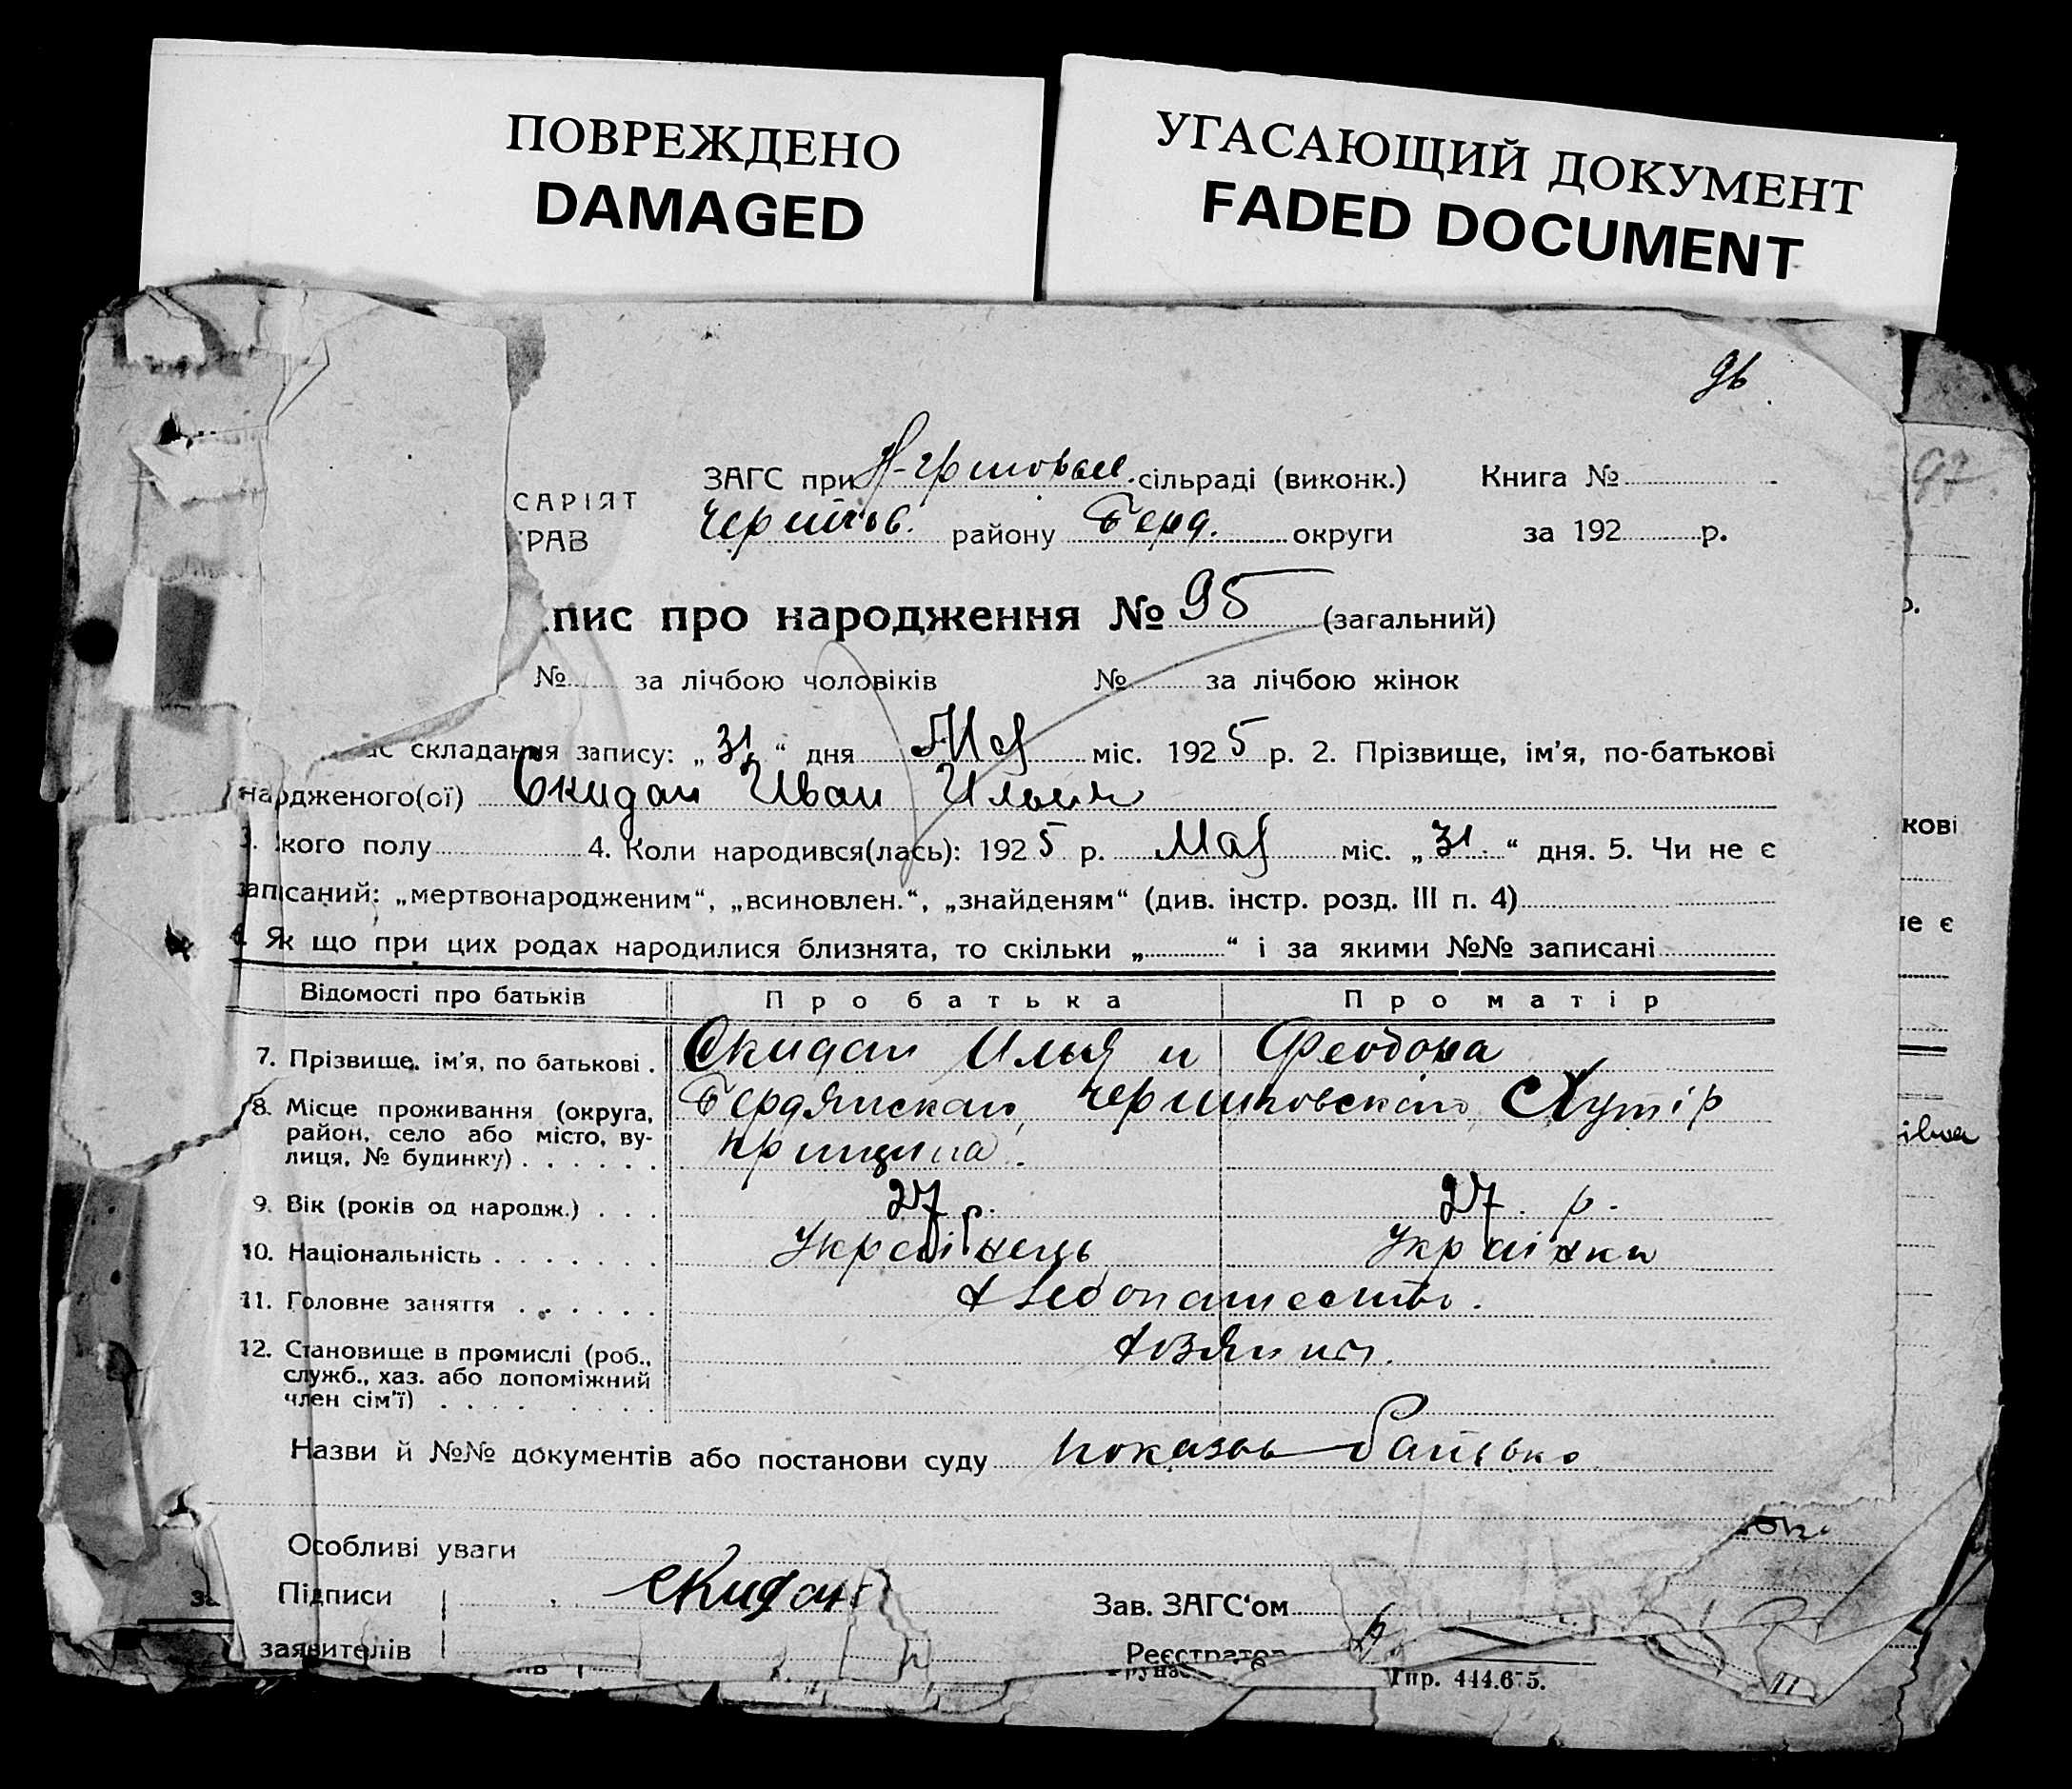 ПОВРЕЖДЕНО
DAMAGED
УГАСАЮЩИЙ ДОКУМЕНТ
FADED DOCUMENT
96
97
САРІЯТ
РАВ
ЗАГС при сільраді (виконк.) Книга №
району Берд. округи за 192 р.
пис про народження № 95 (загальний)
№ за лічбою чоловіків № за лічбою жінок
ас складання запису: „31“ дня Мая міс. 1925 р. 2. Прізвище, ім'я, по-батькові
народженого(ої) Скидан Иван Ильич
3. Якого полу 4. Коли народився(лась): 1925 р. Мая міс. „31.“ дня. 5. Чи не є
записаний: „мертвонародженим“, „всиновлен.“, „знайденям“ (див. інстр. розд. III п. 4)
Як що при цих родах народилися близнята, то скільки „ “ і за якими №№ записані
Відомості про батьків Про батька Про матір
7. Прізвище, ім'я, по батькові . Скидан Илья и Феодона
8. Місце проживання (округа, район, село або місто, вулиця, № будинку) . . . . . . Бердянскаи, Хутір
9. Вік (років од народж.) . . . 27 р. 27. р.
10. Національність . . . . . . . Українець Українка
11. Головне заняття . . . . . . Хлебопашество.
12. Становище в промислі (роб., служб., хаз. або допоміжний член сім'ї) . . . . . . . . . Хозяин
Назви й №№ документів або постанови суду показав батько
Особливі уваги
Підписи Скидан Зав. ЗАГС'ом
заявителів Реєстратор
кові
не є